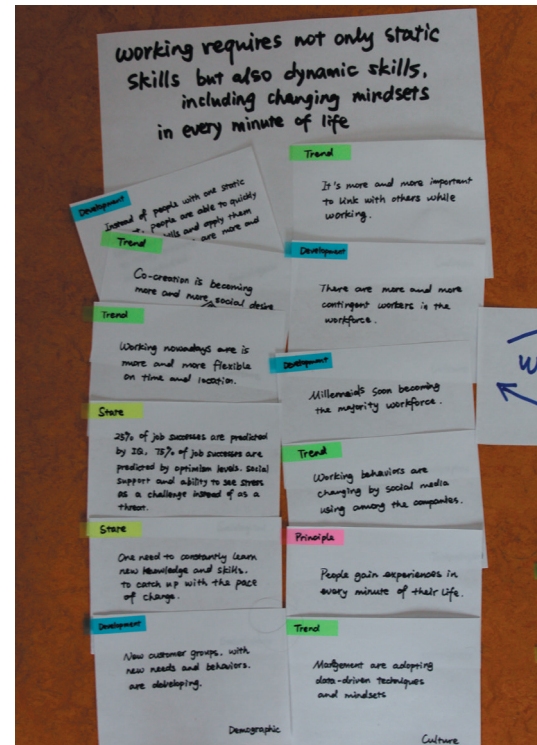 working requires not only static
skills but also dynamic skills,
including changing mindsets
in every minute of life
Development
Instead of people with one static
people are able to quickly
and apply them
are more and
Trend
Co-creation is becoming
more and more social desire
Trend
Working nowadays are is
more and more flexible
on time and location.
State
25% of job successes are predicted
by IQ, 75% of job successes are
predicted by optimism levels, social
support and ability to see stress
as a challenge instead of as a
threat.
State
One need to constantly learn
new knowledge and skills.
to catch up with the pace
of change.
Development
New customer groups, with
new needs and behaviors.
are developing.
Demographic
Trend
It's more and more important
to link with others while
working.
Development
There are more and more
contingent workers in the
workforce.
Development
Millennials soon becoming
the majority workforce.
Trend
Working behaviors are
changing by social media
using among the companies.
Principle
People gain experiences in
every minute of their life.
Trend
Management are adopting
data-driven techniques
and mindsets
Culture